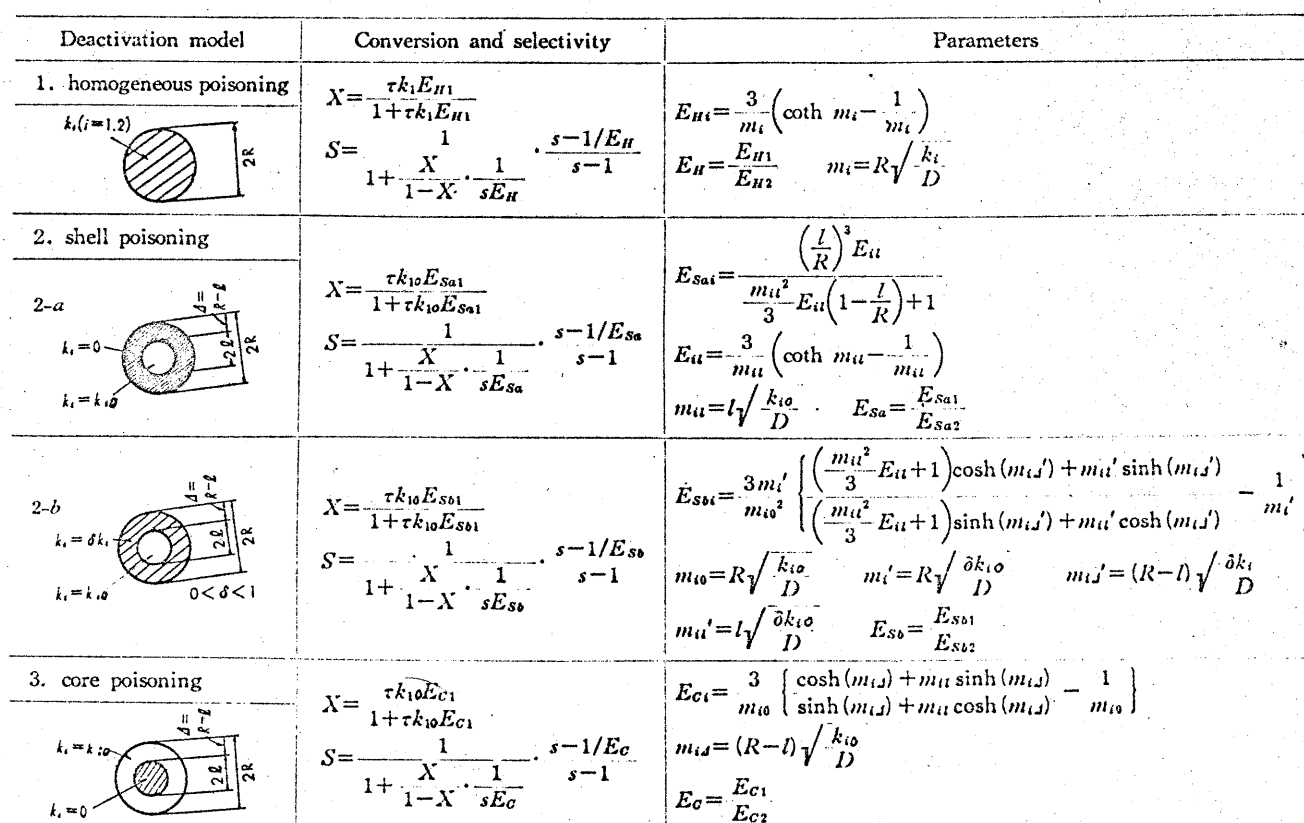 Deactivation model Conversion and selectivity Parameters
1. homogeneous poisoning
kᵢ(i=1.2)
2R
X=τk₁E_H1/(1+τk₁E_H1)
S=1/(1+X/(1−X)·1/(sE_H))·(s−1/E_H)/(s−1)
E_Hi=3/mᵢ(coth mᵢ−1/mᵢ)
E_H=E_H1/E_H2 mᵢ=R√(kᵢ/D)
2. shell poisoning
2-a
Δ=R−l
kᵢ=0
2l
2R
kᵢ=kᵢ₀
X=τk₁₀E_Sa1/(1+τk₁₀E_Sa1)
S=1/(1+X/(1−X)·1/(sE_Sa))·(s−1/E_Sa)/(s−1)
E_Sai=(l/R)³E_il/(m_il²/3 E_il(1−l/R)+1)
E_il=3/m_il(coth m_il−1/m_il)
m_il=l√(kᵢ₀/D) E_Sa=E_Sa1/E_Sa2
2-b
Δ=R−l
kᵢ=δkᵢ
2l
2R
kᵢ=kᵢ₀
0<δ<1
X=τk₁₀E_Sb1/(1+τk₁₀E_Sb1)
S=1/(1+X/(1−X)·1/(sE_Sb))·(s−1/E_Sb)/(s−1)
E_Sbi=3mᵢ'/mᵢ₀²{((m_il²/3 E_il+1)cosh(m_iΔ')+m_il' sinh(m_iΔ'))/((m_il²/3 E_il+1)sinh(m_iΔ')+m_il' cosh(m_iΔ'))−1/mᵢ'
mᵢ₀=R√(kᵢ₀/D) mᵢ'=R√(δkᵢ₀/D) m_iΔ'=(R−l)√(δkᵢ/D)
m_il'=l√(δkᵢ₀/D) E_Sb=E_Sb1/E_Sb2
3. core poisoning
Δ=R−l
kᵢ=kᵢ₀
2l
2R
kᵢ=0
X=τk₁₀E_C1/(1+τk₁₀E_C1)
S=1/(1+X/(1−X)·1/(sE_C))·(s−1/E_C)/(s−1)
E_Ci=3/mᵢ₀{(cosh(m_iΔ)+m_il sinh(m_iΔ))/(sinh(m_iΔ)+m_il cosh(m_iΔ))−1/mᵢ₀}
m_iΔ=(R−l)√(kᵢ₀/D)
E_C=E_C1/E_C2